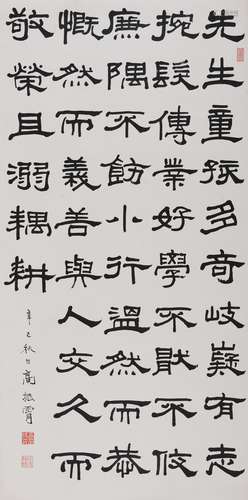 先生童孩多奇岐嶷有志
捥髮傳業好學不猒不攸
廉隅不飭小行溫然而恭
慨然而義善與人交久而
敬榮且溺耦耕
辛巳秋日高振霄